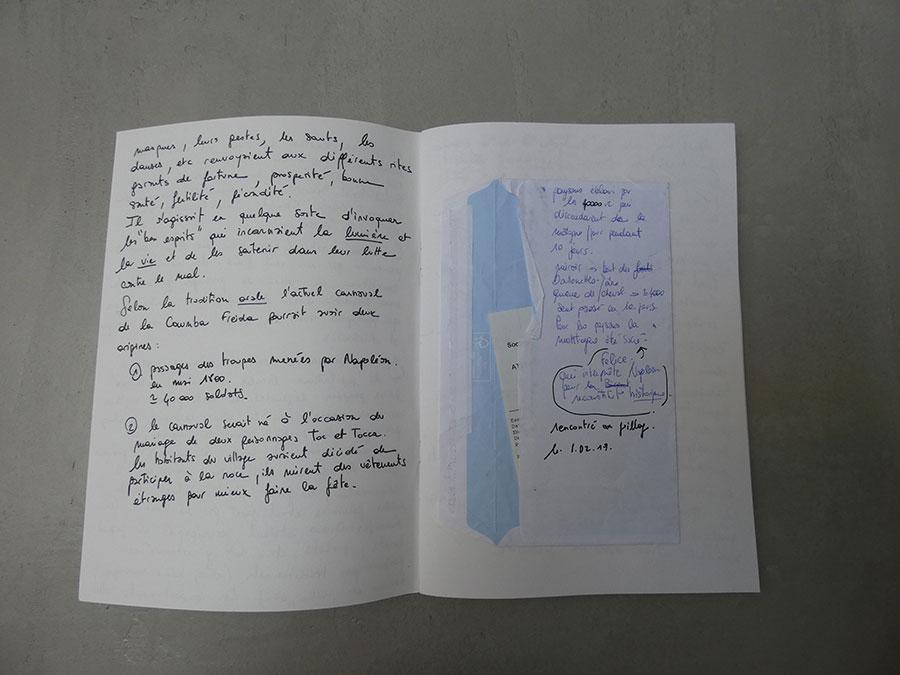 masques, leurs gestes, les sauts, les
danses, etc renvoyaient aux différents rites
garants de fortune, prosperité, bonne
santé, fertilité, fécondité.
Il s'agissait en quelque sorte d'invoquer
les "bons esprits" qui incarnaient la lumière et
la vie et de les soutenir dans leur lutte
contre le mal.
Selon la tradition orale l'actuel carnaval
de la Coumba Freida pourrait avoir deux
origines :
1 passages des troupes menées par Napoléon.
en mai 1800.
≃ 40 000 soldats.
2 le carnaval serait né à l'occasion du
mariage de deux personnages Toc et Tocca.
les habitants du village auraient décidé de
participer à la noce, ils mirent des vêtements
étranges pour mieux faire la fête.
paysans
les 40000 qui
descendaient de la
pendant
10 jours.
miroir
queue de cheval → 40000
sont passés
Pour les paysans la
montagne été
Felice.
qui interprète Napoléon
pour la
historique.
rencontré au village.
le 1.02.13.
Soc